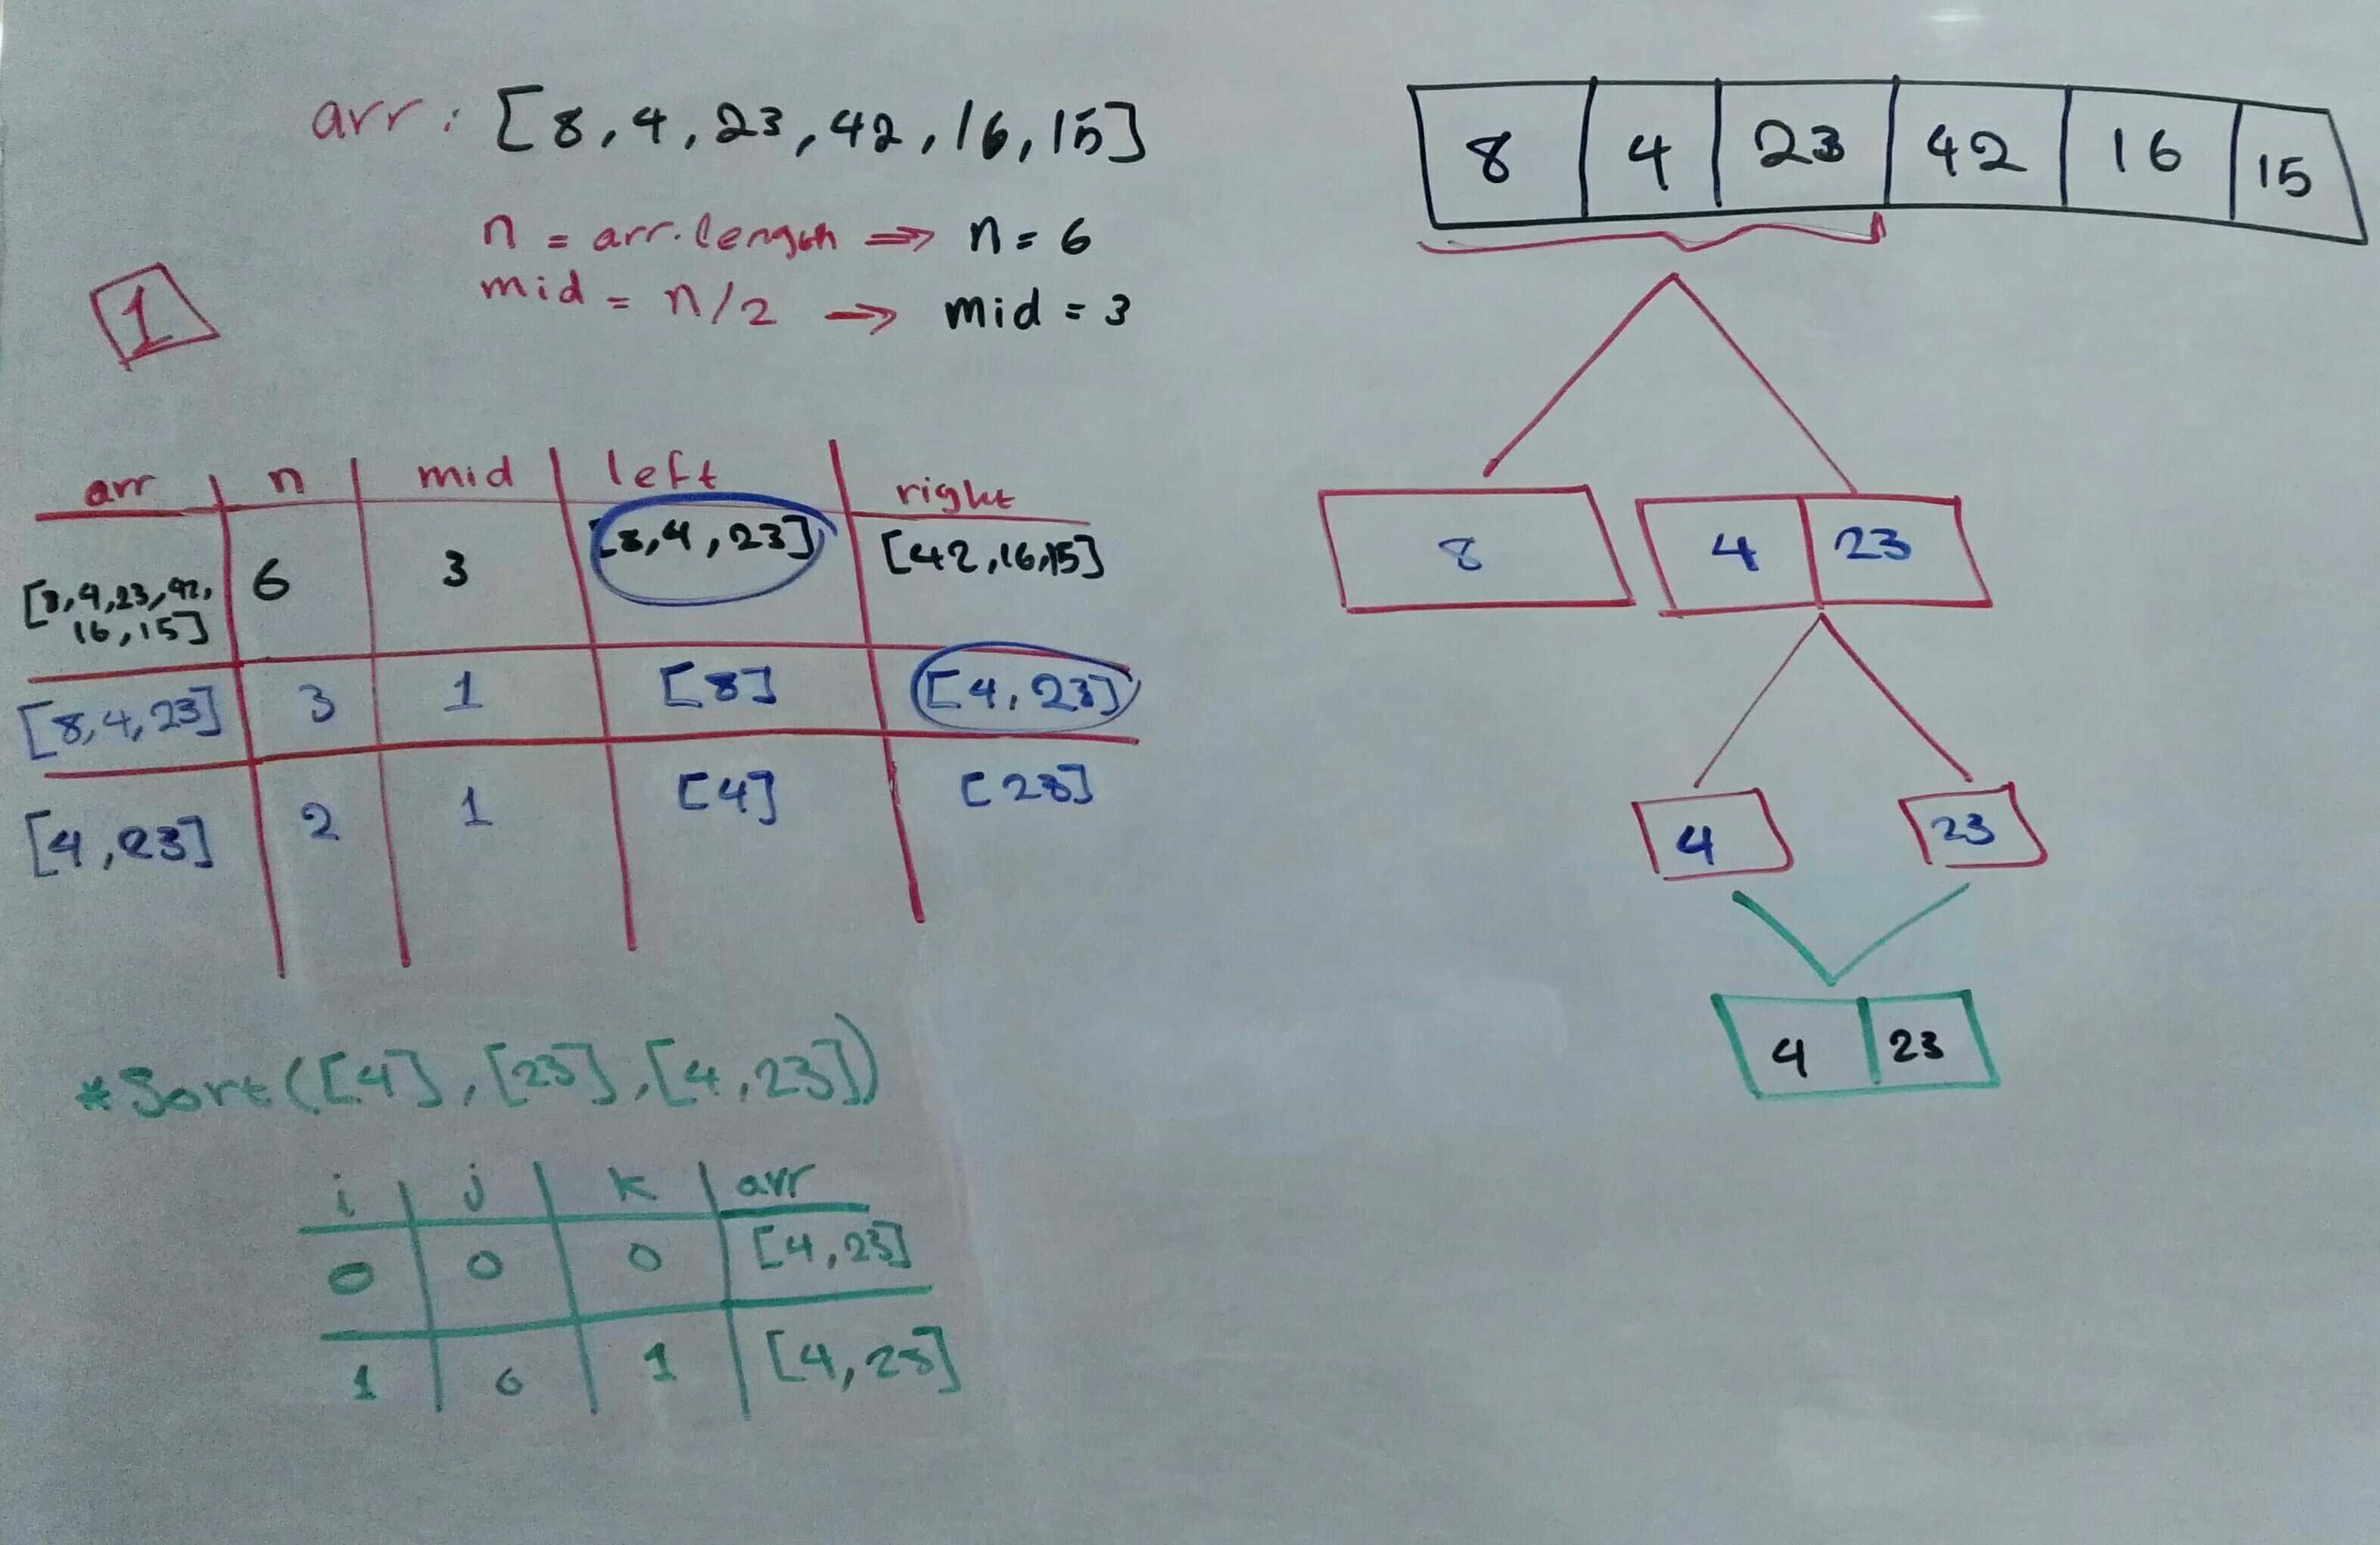 arr: [8,4,23,42,16,15]
n = arr.length => n = 6
mid = n/2 -> mid = 3
1
arr n mid left right
[8,4,23,42, 6 3 [8,4,23] [42,16,15]
16,15]
[8,4,23] 3 1 [8] [4,23]
[4,23] 2 1 [4] [23]
*Sort([4],[23],[4,23])
i j k arr
0 0 0 [4,23]
1 0 1 [4,23]
8 4 23 42 16 15
8 4 23
4 23
4 23